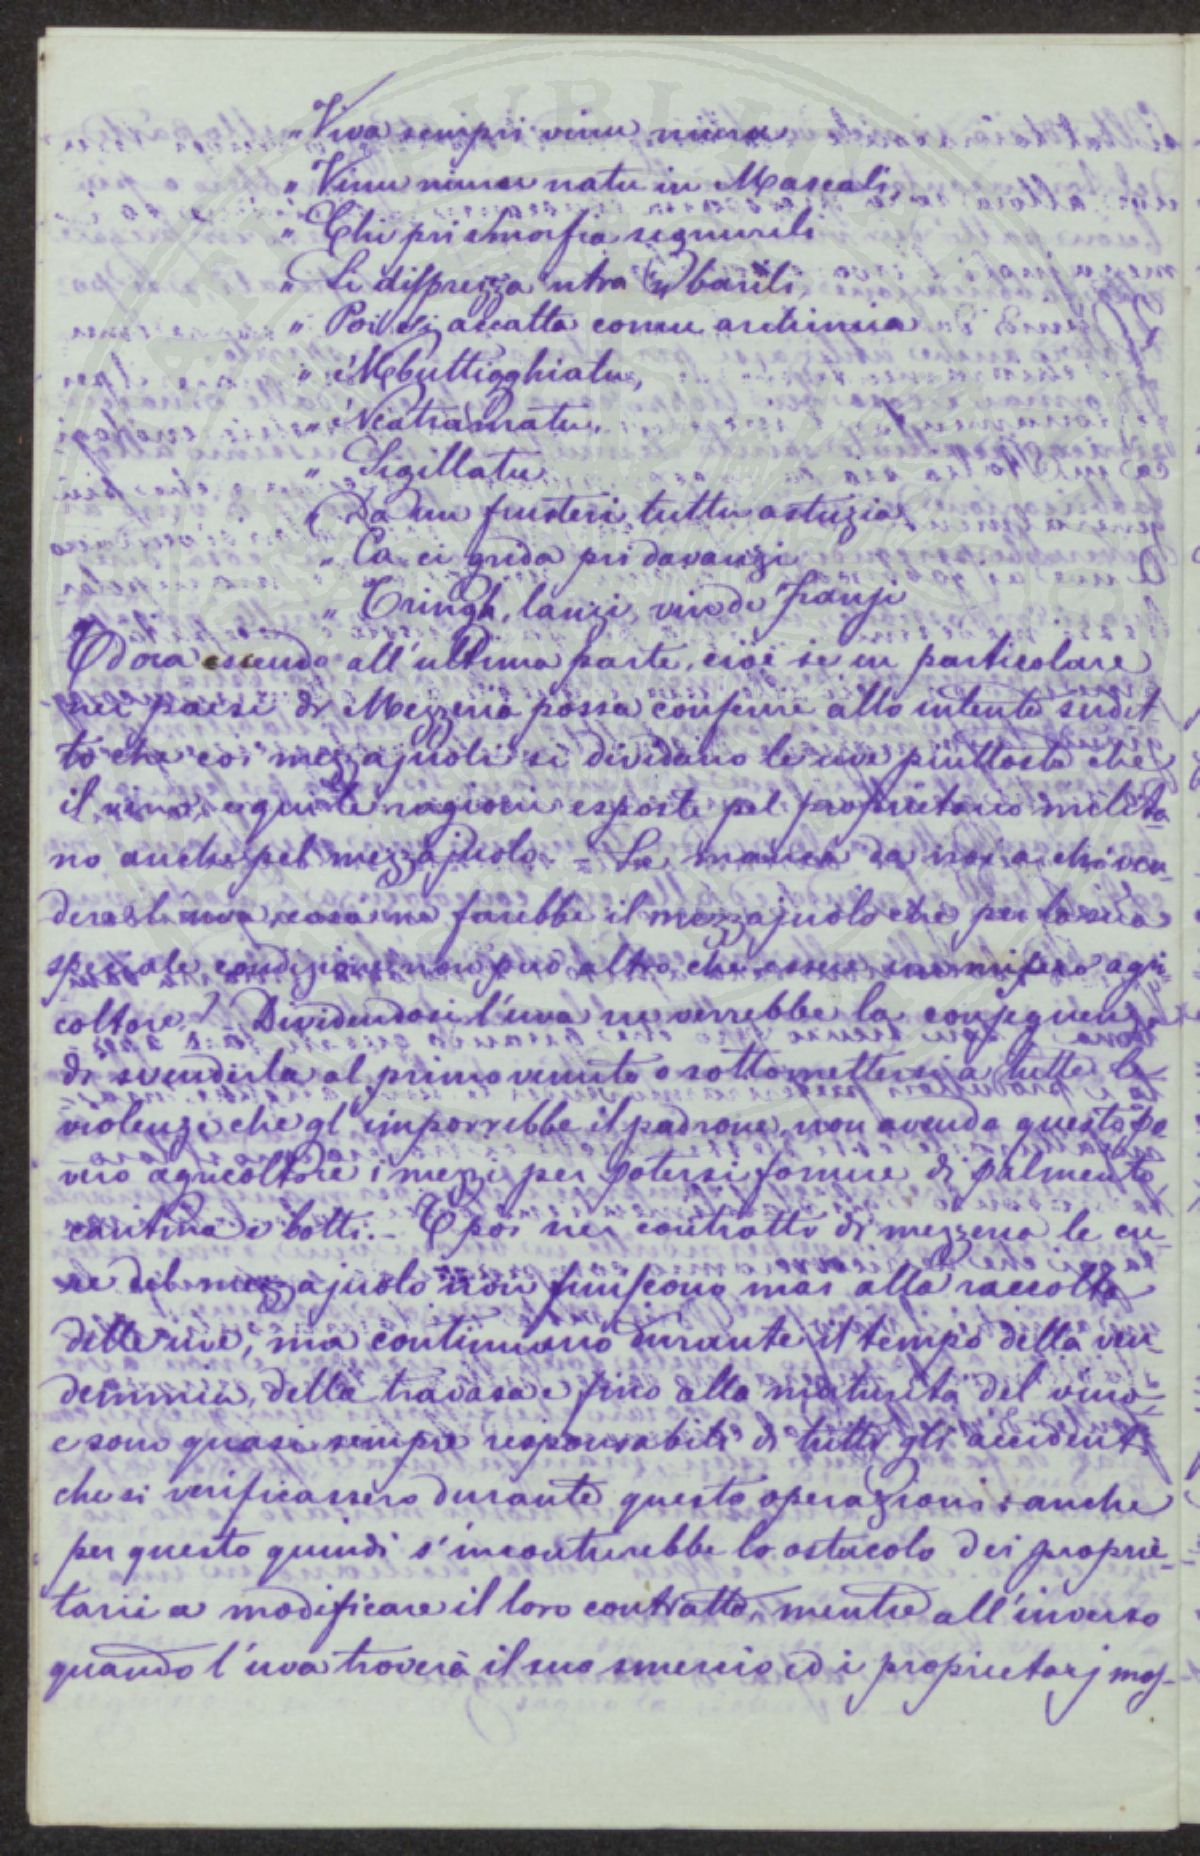 „ Viva sempri vinu niuru
„ Vinu niuru natu in Mascali,
„ Chi pri smorfia signurili
„ Si disprezza ntra li barili,
„ Poi si accatta comu archimia
„ Mbuttigghiatu,
„ Ncatramatu,
„ Sigillatu
„ Da un furisteri tuttu astuzia
„ Ca ci grida pri davanzi
„ Tringh, lanzi, vin de Franji
Ed ora essendo all'ultima parte, cioè se in particolare
nei paesi di Mezzeria possa conferire allo intento sudet-
to che coi mezzajuoli si dividano le uve piuttosto che
il vino, e qui le ragioni esposte pel proprietario milita-
no anche pel mezzajuolo. – Se manca da noi a chi ven-
dere l'uva, cosa ne farebbe il mezzajuolo che per la sua
speciale condizione non può altro che essere un misero agri-
coltore? – Dividendosi l'uva ne verrebbe la conseguenza
di svenderla al primo venuto o sottomettersi a tutte le
violenze che gl'imporrebbe il padrone, non avendo questo po-
vero agricoltore i mezzi per potersi fornire di palmento,
cantina e botti. – E poi nei contratti di mezzeria le cu-
re del mezzajuolo non finiscono mai alla raccolta
delle uve, ma continuano durante il tempo della ven-
demmia, della travasa e fino alla maturità del vino
e sono quasi sempre responsabili di tutti gli accidenti
che si verificassero durante questa operazioni: anche
per questo quindi s'incontrerebbe lo ostacolo dei proprie-
tarii a modificare il loro contratto, mentre all'inverso
quando l'uva troverà il suo smercio ed i proprietarj mos-